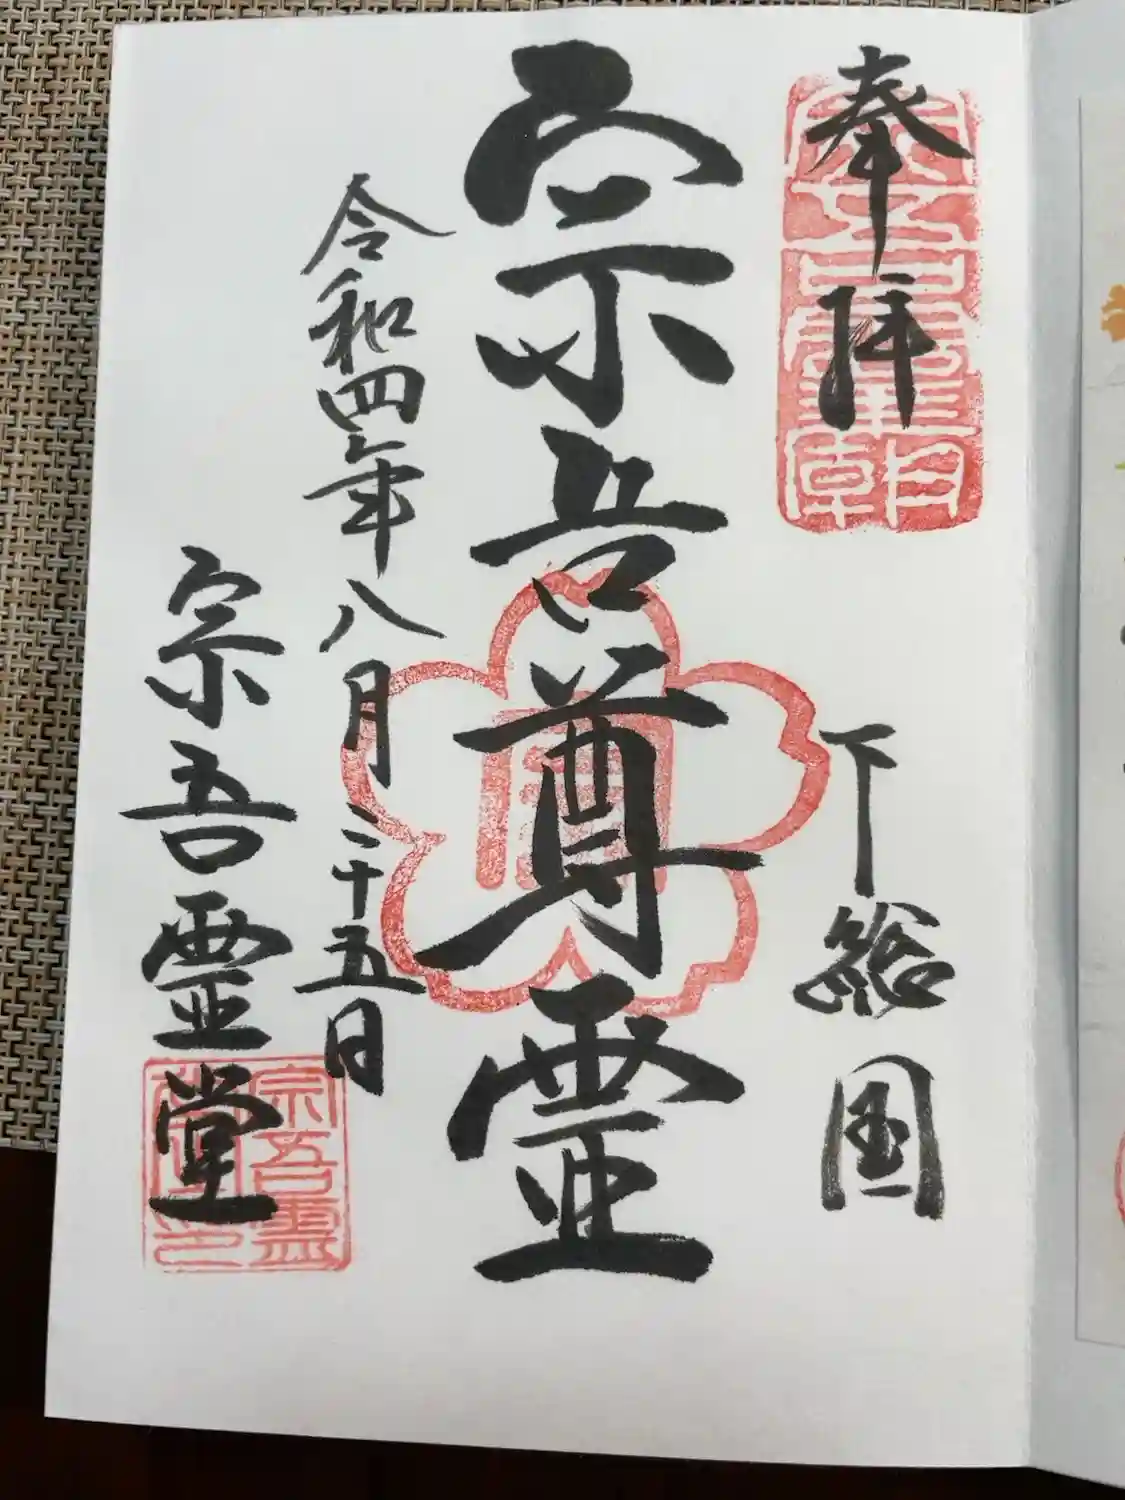 奉拝
下総国
宗吾尊霊
令和四年八月二十五日
宗吾霊堂
宗吾霊